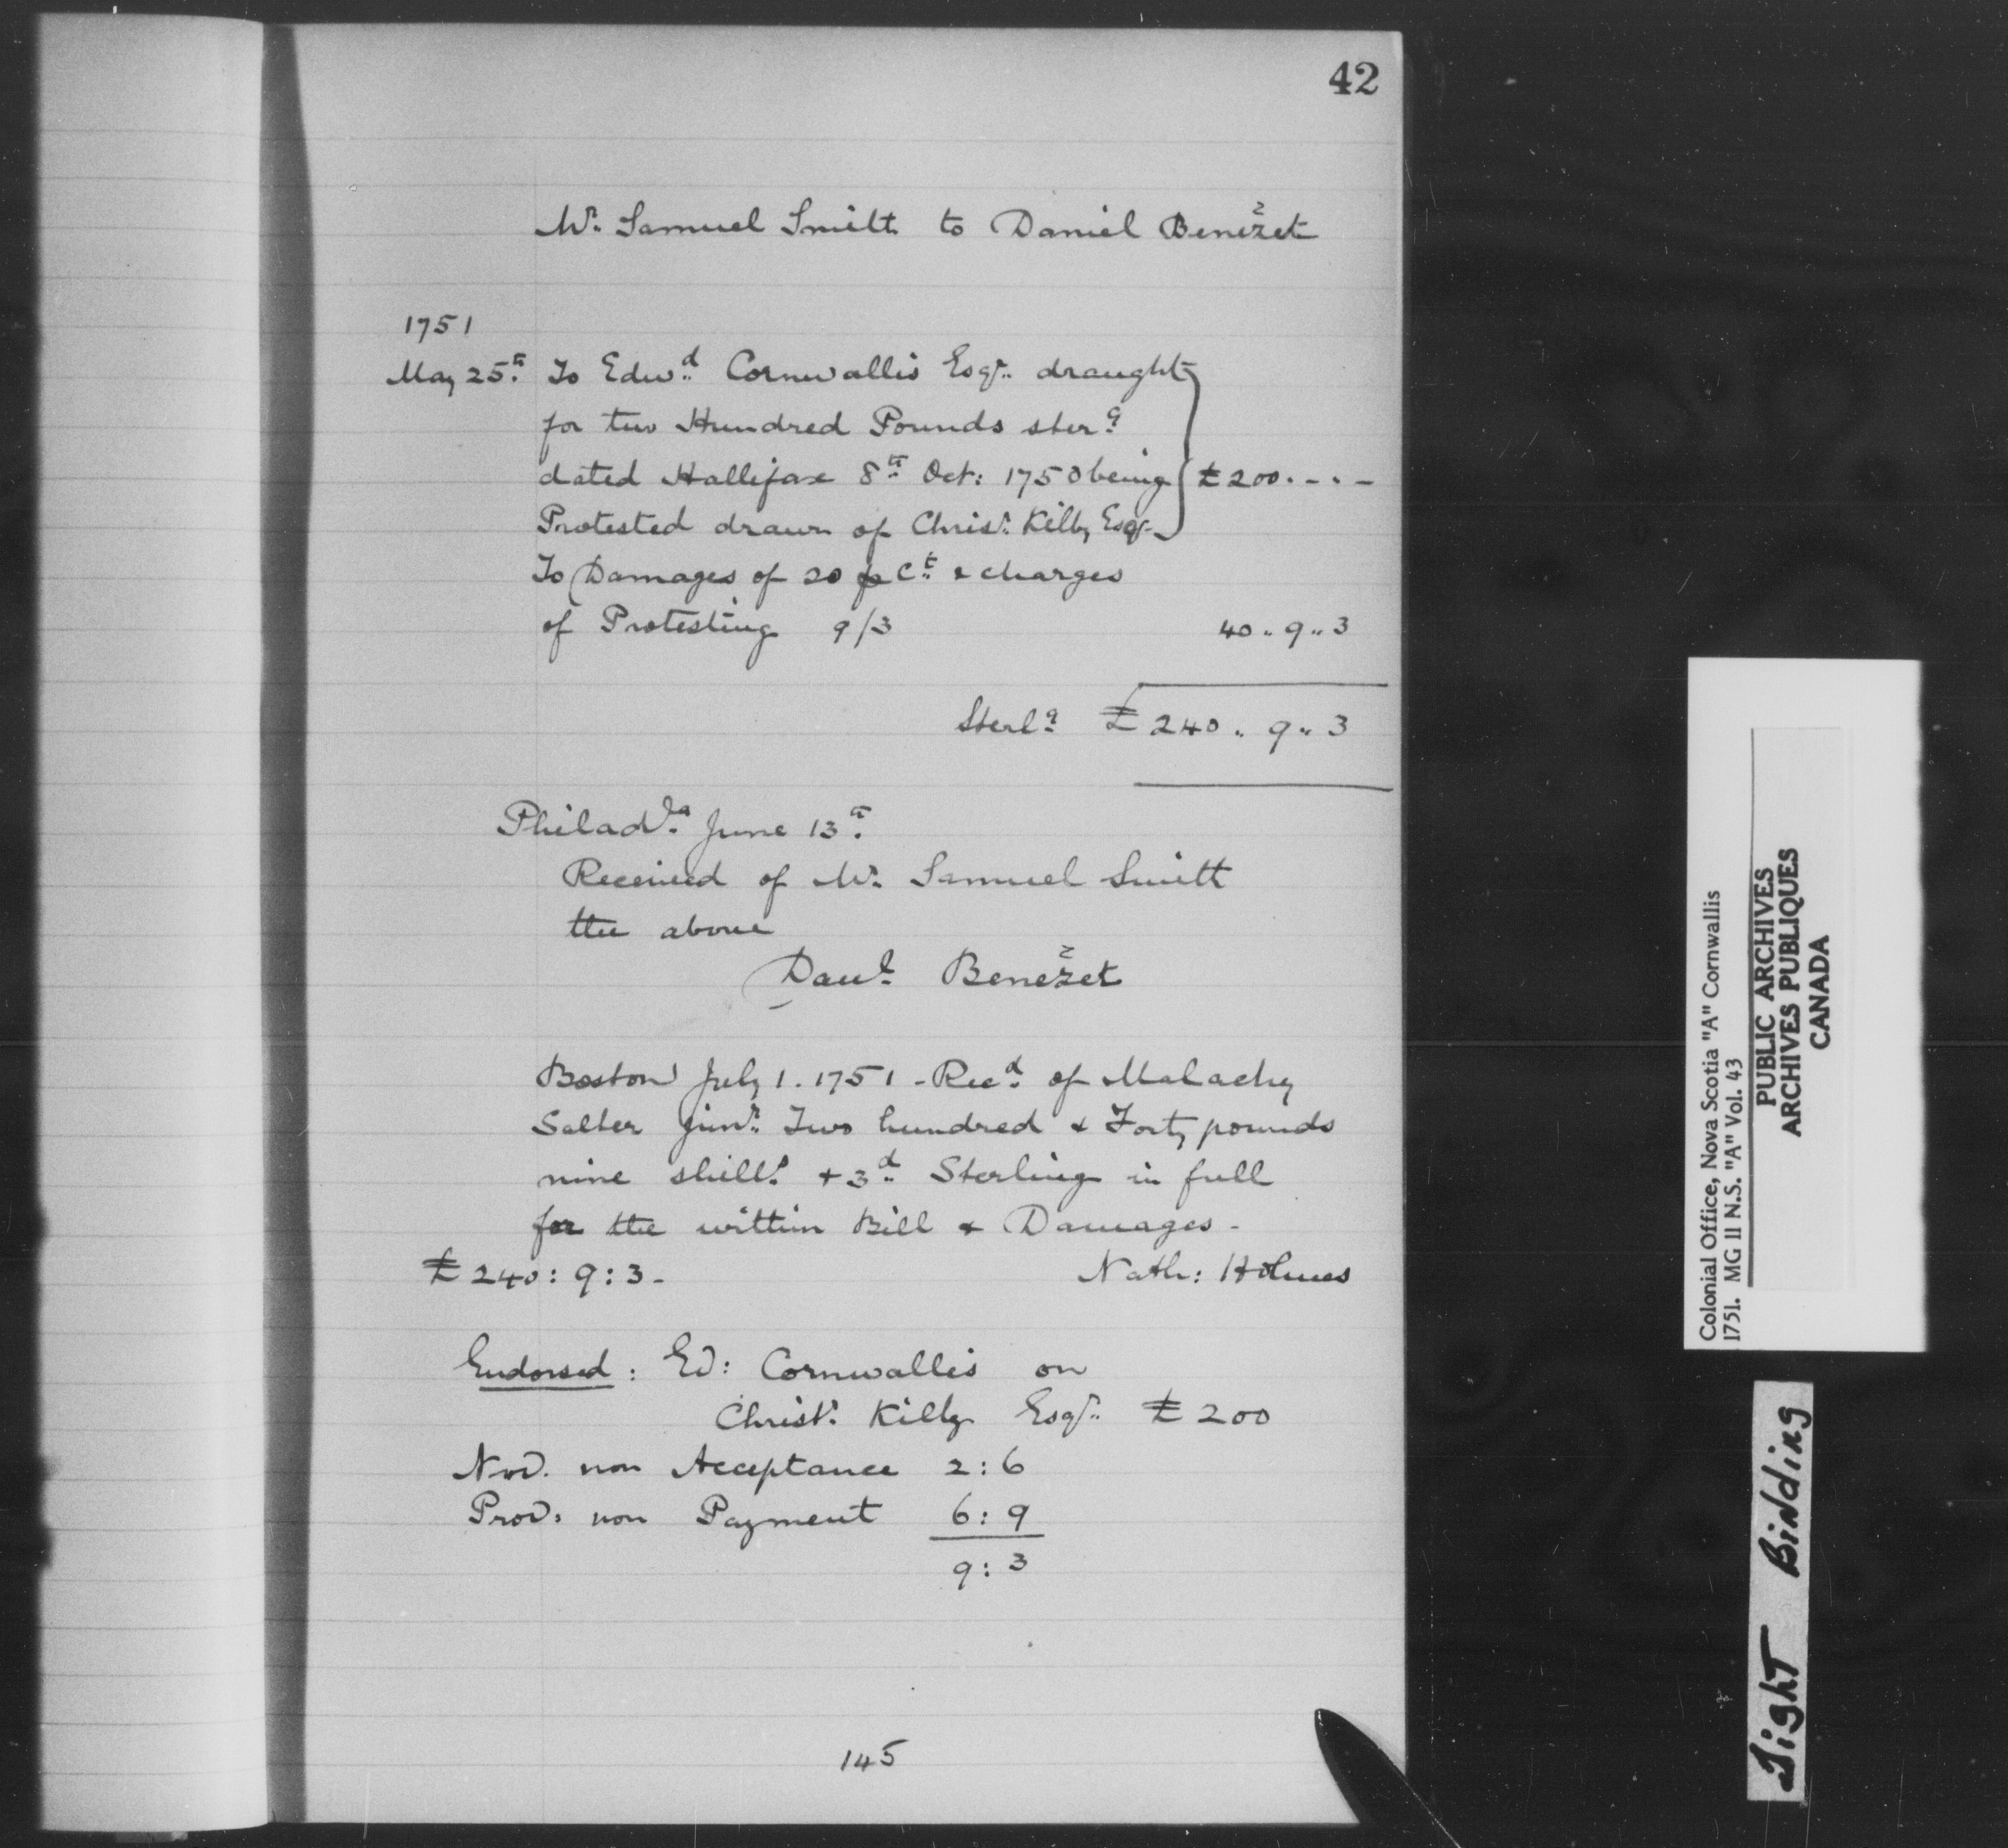 42
Mr. Samuel Smith to Daniel Benezet
1751
May 25th. To Edwd. Cornwallis Esqr. draught
for two Hundred Pounds sterg.
dated Hallifax 8th. Oct: 1750 being £200.-.-
Protested drawn of Christr. Kilby Esqr.
To Damages of 20 p Ct. & charges
of Protesting 9/3 40..9..3
Sterlg. £240..9..3
Philadla. June 13th.
Received of Mr. Samuel Smith
the above
Danl. Benezet
Boston July 1. 1751 - Recd. of Malachy
Salter Junr. Two hundred & Forty pounds
nine shills. + 3d. Sterling in full
for the within Bill & Damages -
£240:9:3- Nath: Holmes
Endorsed: Ed: Cornwallis on
Christr. Kilby Esqr. £200
non Acceptance 2:6
non Payment 6:9
9:3
145
Colonial Office, Nova Scotia "A" Cornwallis
1751. MG 11 N.S. "A" Vol. 43
PUBLIC ARCHIVES
ARCHIVES PUBLIQUES
CANADA
Tight Binding